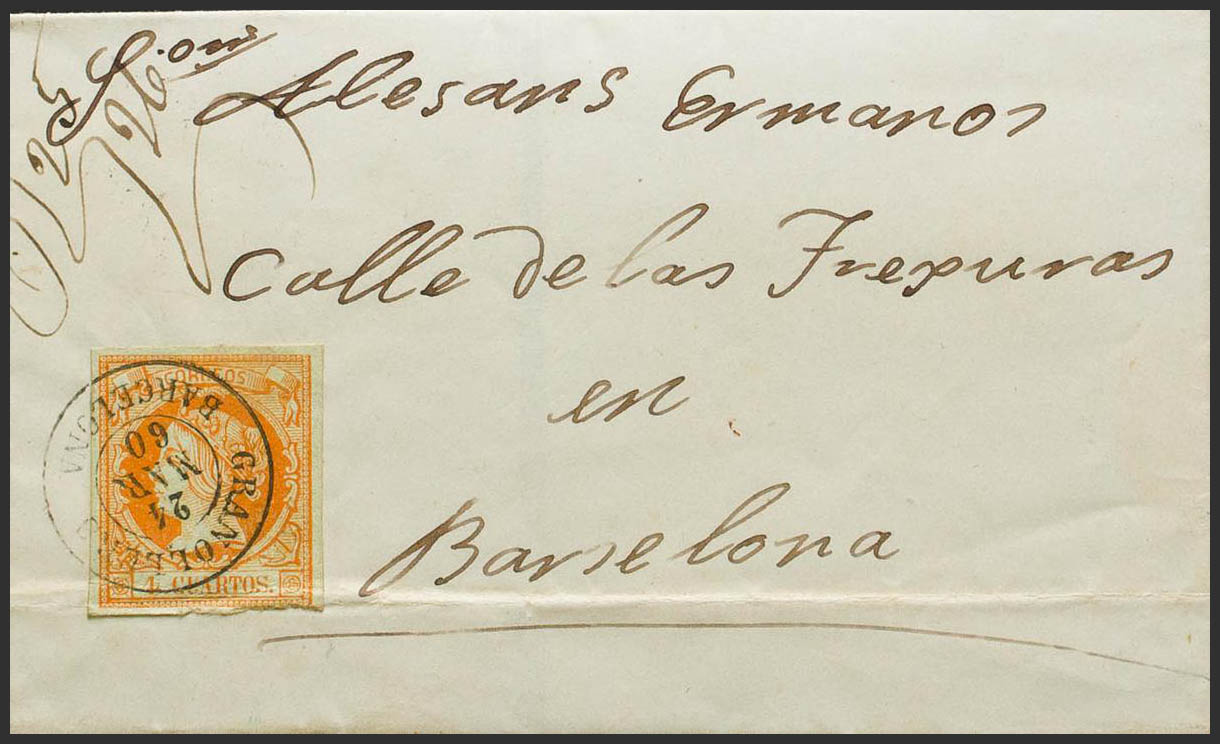 S.ors Alesans Ermanos
Calle de las Frexuras
en
Barselona
CORREOS
4 CUARTOS.
GRANOLLERS
24
MAR
60
BARCELONA